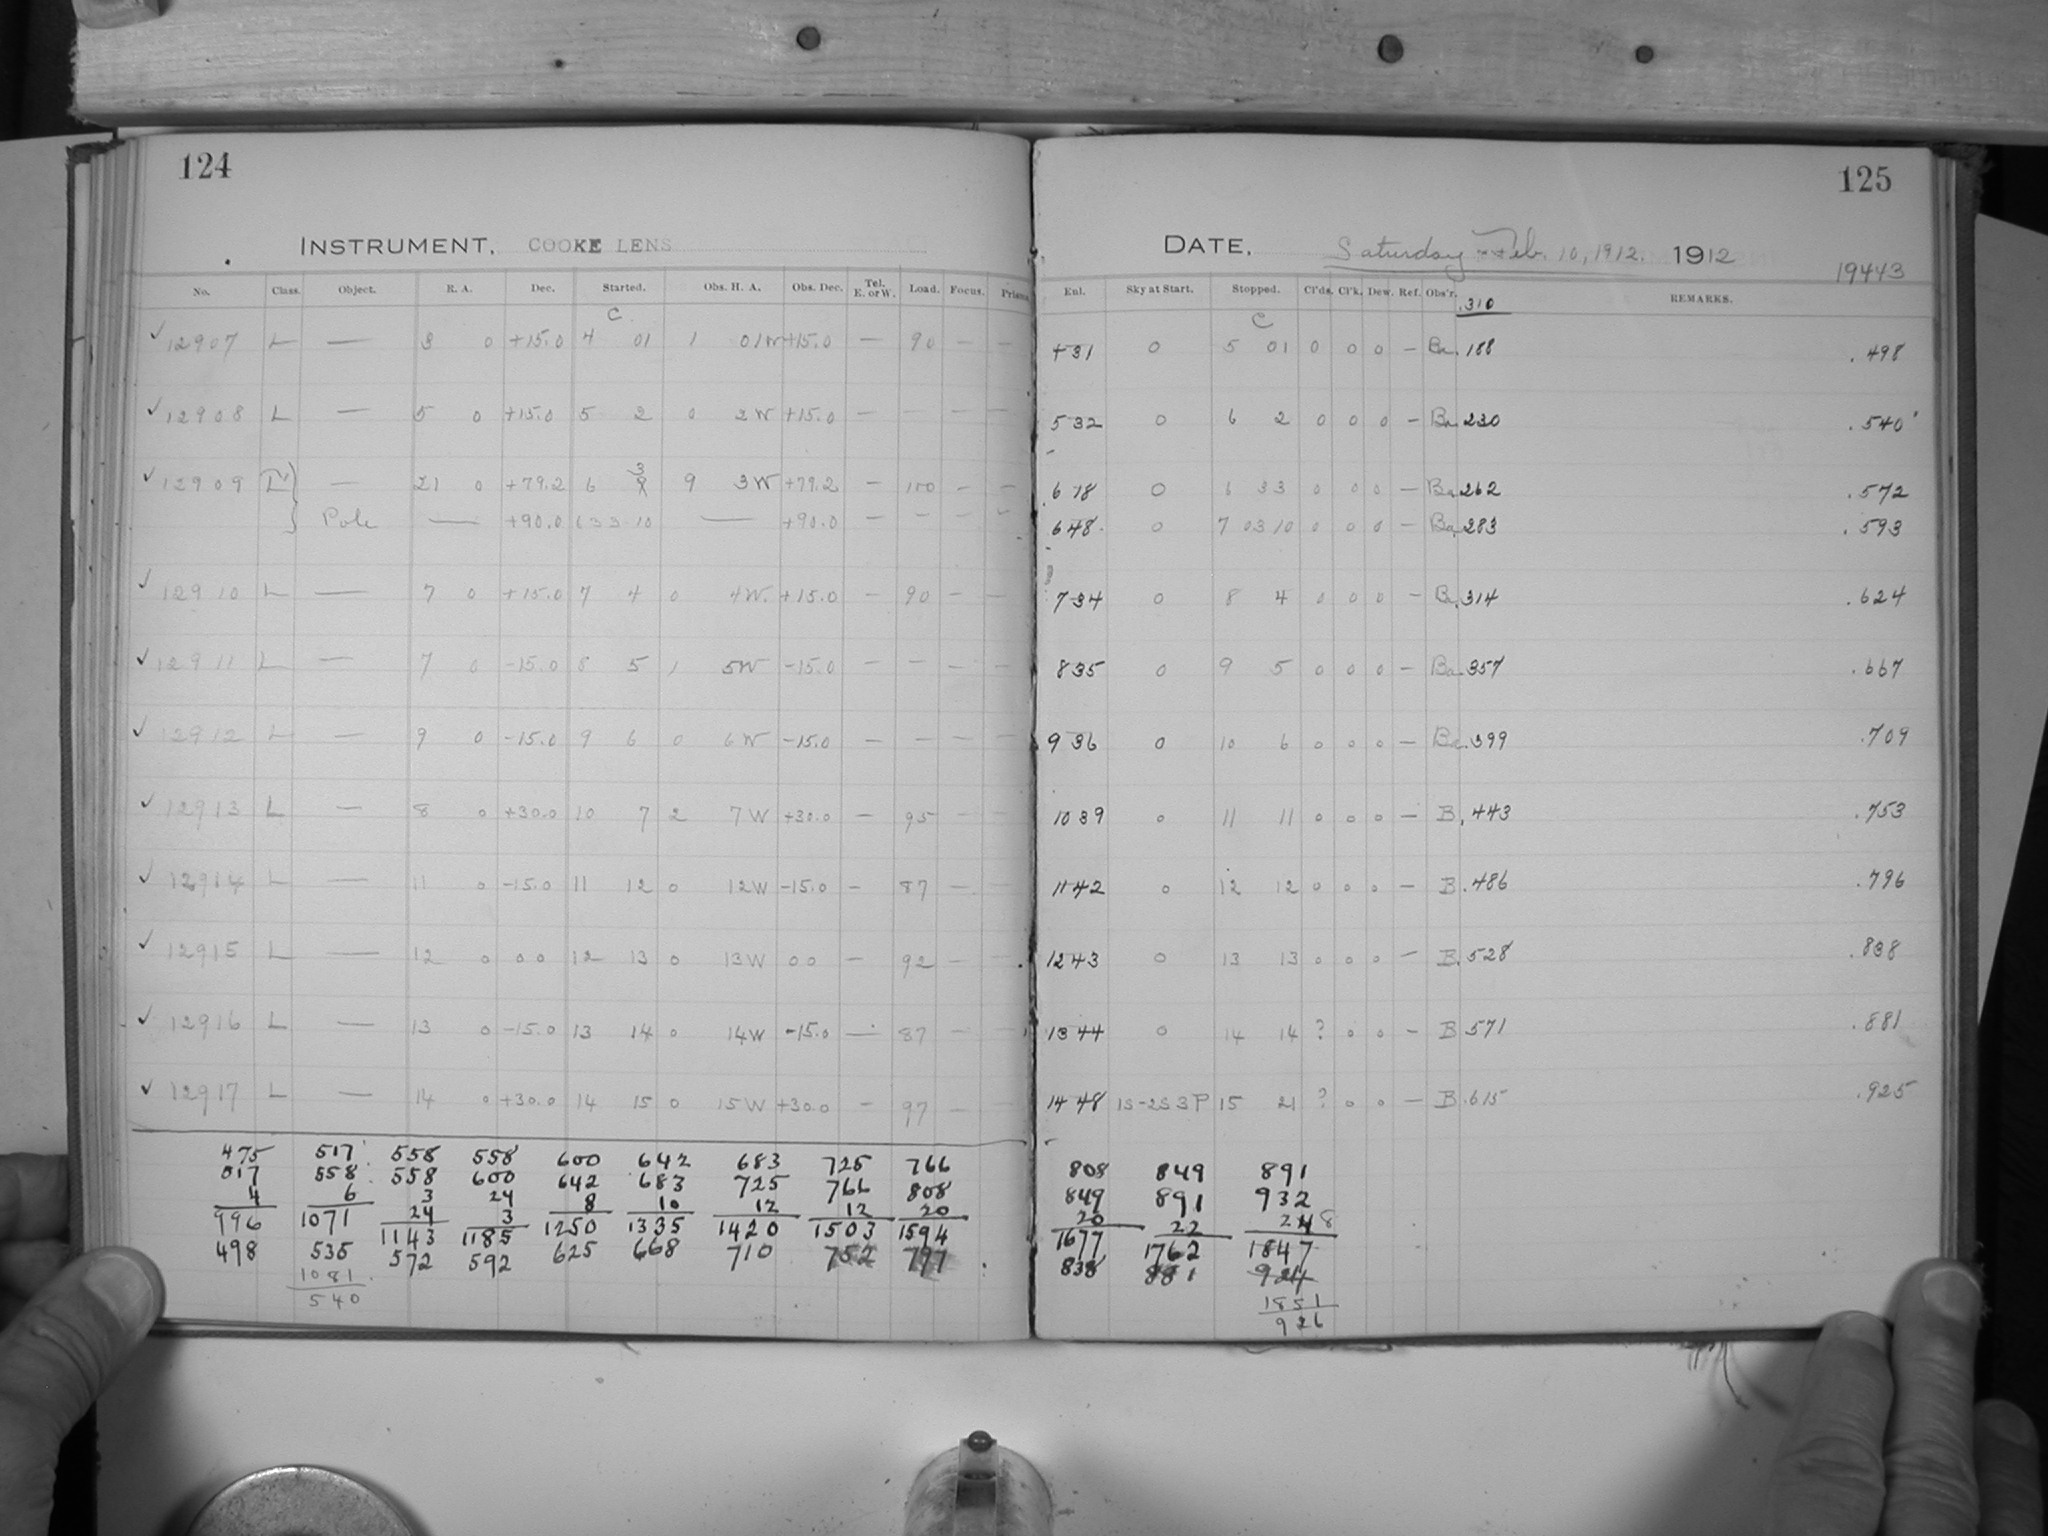 124
INSTRUMENT. COOKE LENS
No. Class. Object. R. A. Dec. Started. Obs. H. A. Obs. Dec. Tel. E. or W. Load. Focus. Prisms.
C
✓ 12907 L — 3 0 +15.0 4 01 1 01W +15.0 — 90 — —
✓ 12908 L — 5 0 +15.0 5 2 0 2W +15.0 — — — —
✓ 12909 — 21 0 +79.2 6 3 9 3W +79.2 — 100 — —
Pole — +90.0 6 33 10 — +90.0 — — — —
✓ 12910 L — 7 0 +15.0 7 4 0 4W. +15.0 — 90 — —
✓ 12911 L — 7 0 -15.0 8 5 1 5W -15.0 — — — —
✓ 12912 L — 9 0 -15.0 9 6 0 6W -15.0 — — — —
✓ 12913 L — 8 0 +30.0 10 7 2 7W +30.0 — 95 — —
✓ 12914 L — 11 0 -15.0 11 12 0 12W -15.0 — 87 — —
✓ 12915 L — 12 0 0 0 12 13 0 13W 0 0 — 92 — —
✓ 12916 L — 13 0 -15.0 13 14 0 14W -15.0 — 87 — —
✓ 12917 L — 14 0 +30.0 14 15 0 15W +30.0 — 97 — —
475 517 558 558 600 642 683 725 766
517 558 558 600 642 683 725 766 808
4 6 3 24 8 10 12 12 20
996 1071 24 3 1250 1335 1420 1503 1594
498 535 1143 1185 625 668 710 752 797
1081 572 592
540
125
DATE. Saturday Feb. 10, 1912. 1912
19443
Enl. Sky at Start. Stopped. Cl'ds. Cl'k. Dew. Ref. Obs'r. REMARKS.
.310
C
431 0 5 01 0 0 0 — Ba .188 .498
532 0 6 2 0 0 0 — Ba .230 .540
618 0 6 33 0 0 0 — Ba .262 .572
648 0 7 03 10 0 0 0 — Ba .283 .593
734 0 8 4 0 0 0 — Ba .314 .624
835 0 9 5 0 0 0 — Ba .357 .667
936 0 10 6 0 0 0 — Ba .399 .709
1039 0 11 11 0 0 0 — B .443 .753
1142 0 12 12 0 0 0 — B .486 .796
1243 0 13 13 0 0 0 — B .528 .838
1344 0 14 14 ? 0 0 — B .571 .881
1448 1S-2S3P 15 21 ? 0 0 — B .615 .925
808 849 891
849 891 932
20 22
1677 1762 1847
838 881 924
1851
926